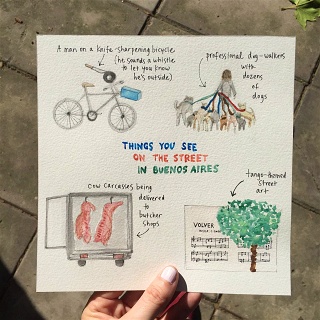 A man on a knife-sharpening bicycle
(he sounds a whistle
to let you know
he's outside)
professional dog-walkers
with
dozens
of
dogs
THINGS YOU SEE
ON THE STREET
IN BUENOS AIRES
Cow carcasses being
delivered
to
butcher
shops
tango-themed
street
art
VOLVER